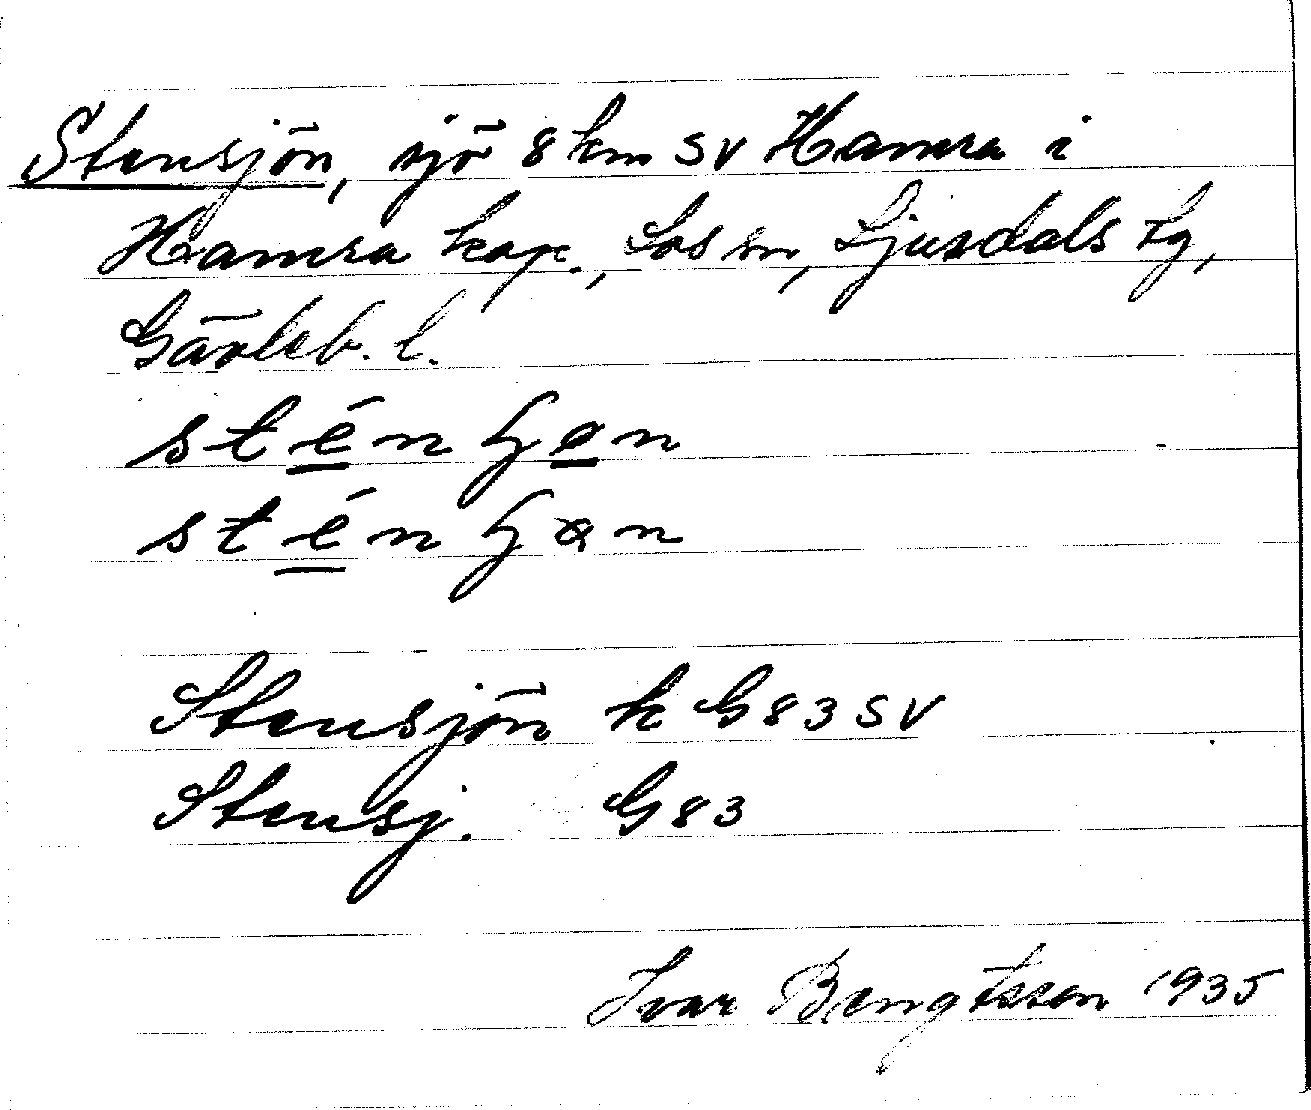 Stensjön, sjö 8 km SV Hamra i
Hamra kap., Los sn, Ljusdals tg,
Gävleb. l.
sténʃɵn
sténʃɵn
Stensjön k G 83 SV
Stensj. G 83
Ivar Bengtsson 1935